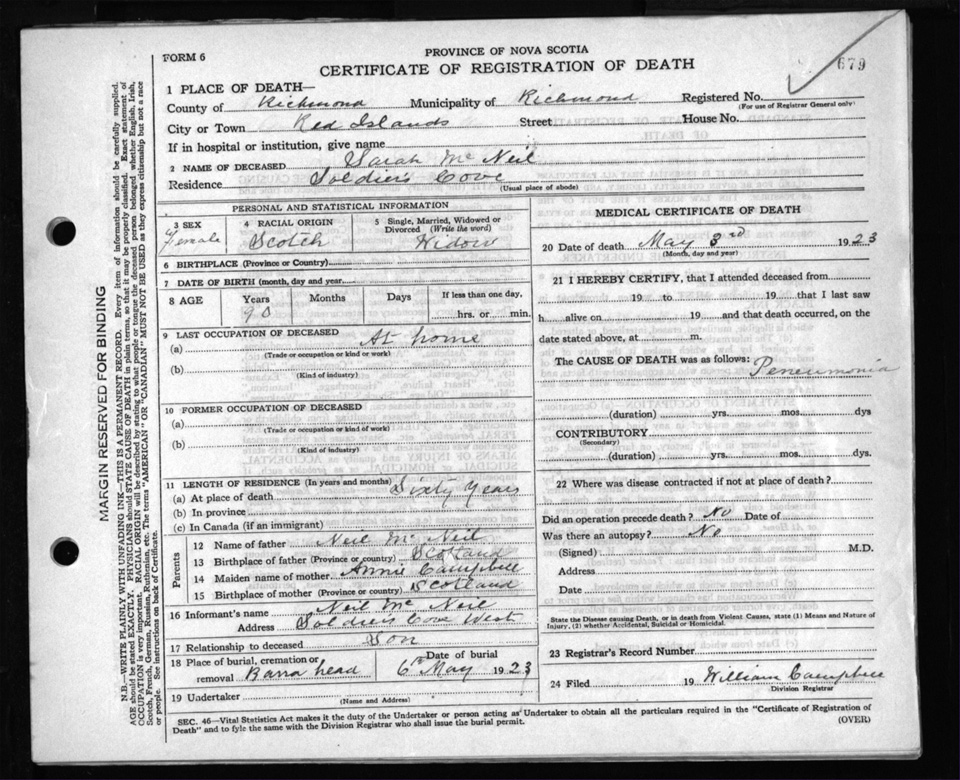 FORM 6
PROVINCE OF NOVA SCOTIA
CERTIFICATE OF REGISTRATION OF DEATH
679
1 PLACE OF DEATH—
County of Richmond Municipality of Richmond Registered No.
(For use of Registrar General only)
City or Town Red Islands Street House No.
If in hospital or institution, give name
2 NAME OF DECEASED Sarah Mc Neil
Residence Soldiers Cove
(Usual place of abode)
PERSONAL AND STATISTICAL INFORMATION
3 SEX 4 RACIAL ORIGIN 5 Single, Married, Widowed or Divorced (Write the word)
Female Scotch Widow
6 BIRTHPLACE (Province or Country)
7 DATE OF BIRTH (month, day and year)
8 AGE Years Months Days If less than one day,
90 hrs. or min.
9 LAST OCCUPATION OF DECEASED
(a) At home
(Trade or occupation or kind of work)
(b)
(Kind of industry)
10 FORMER OCCUPATION OF DECEASED
(a)
(Trade or occupation or kind of work)
(b)
(Kind of industry)
11 LENGTH OF RESIDENCE (In years and months)
(a) At place of death Sixty Years
(b) In province
(c) In Canada (if an immigrant)
Parents
12 Name of father Neil Mc Neil
13 Birthplace of father (Province or country) Scotland
14 Maiden name of mother Annie Campbell
15 Birthplace of mother (Province or country) Scotland
16 Informant's name Neil Mc Neil
Address Soldiers Cove West
17 Relationship to deceased Son
18 Place of burial, cremation or removal Barra head Date of burial 6th May 1923
19 Undertaker
(Name and Address)
MEDICAL CERTIFICATE OF DEATH
20 Date of death May 3rd 1923
(Month, day and year)
21 I HEREBY CERTIFY, that I attended deceased from
19 to 19 that I last saw
h alive on 19 and that death occurred, on
date stated above, at m.
The CAUSE OF DEATH was as follows: Peneumonia
(duration) yrs. mos. dys
CONTRIBUTORY
(Secondary)
(duration) yrs. mos. dys.
22 Where was disease contracted if not at place of death?
Did an operation precede death? No Date of
Was there an autopsy? No
(Signed) M.D.
Address
Date
State the Disease causing Death, or in death from Violent Causes, state (1) Means and Nature of
Injury, (2) whether Accidental, Suicidal or Homicidal.
23 Registrar's Record Number
24 Filed 19 William Campbell
Division Registrar
SEC. 46—Vital Statistics Act makes it the duty of the Undertaker or person acting as Undertaker to obtain all the particulars required in the "Certificate of Registration of
Death" and to fyle the same with the Division Registrar who shall issue the burial permit.
(OVER)
MARGIN RESERVED FOR BINDING
N.B.—WRITE PLAINLY WITH UNFADING INK—THIS IS A PERMANENT RECORD. Every item of information should be carefully supplied.
AGE should be stated EXACTLY. PHYSICIANS should STATE CAUSE OF DEATH in plain terms, so that it may be properly classified. Exact statement of
OCCUPATION is very important. RACIAL ORIGIN will be described by stating to what people or tongue the deceased person belonged whether English, Irish,
Scotch, French, German, Russian, Ruthenian, etc. The terms "AMERICAN" OR "CANADIAN" MUST NOT BE USED as they express citizenship but not a race
or people. See instructions on back of Certificate.